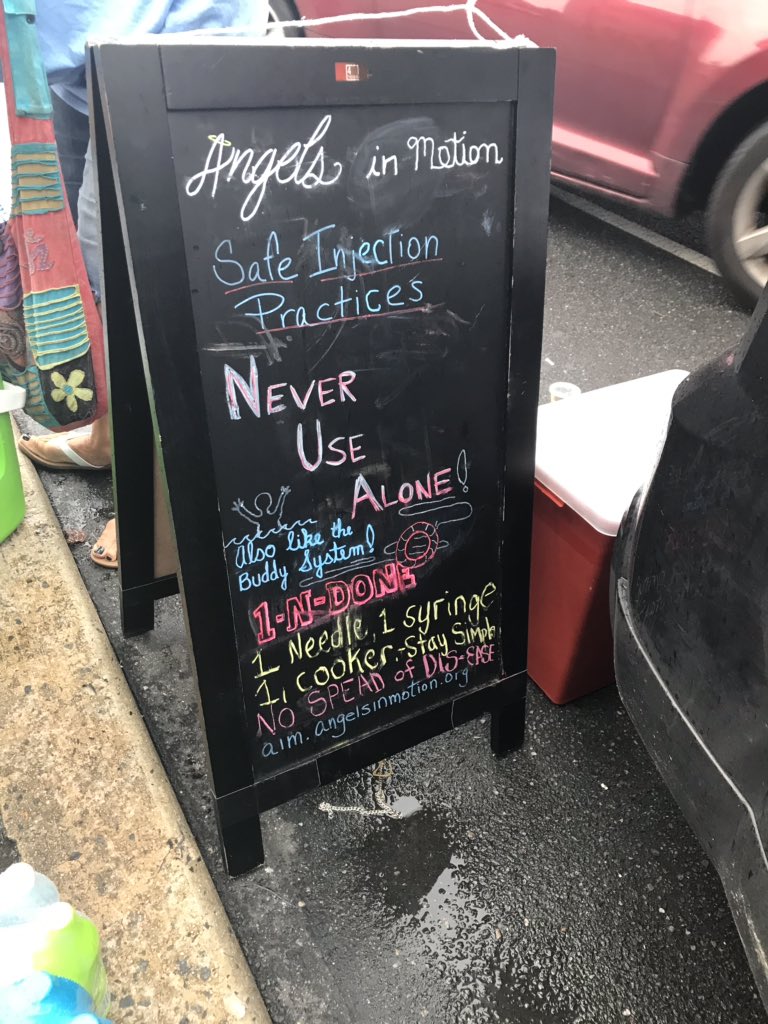 Angels in Motion
Safe Injection
Practices
NEVER
USE
ALONE!
Also like the
Buddy System!
1-N-DONE
1 Needle, 1 syringe
1, cooker.-Stay Simple
NO SPEAD of DIS-EASE
aim.angelsinmotion.org